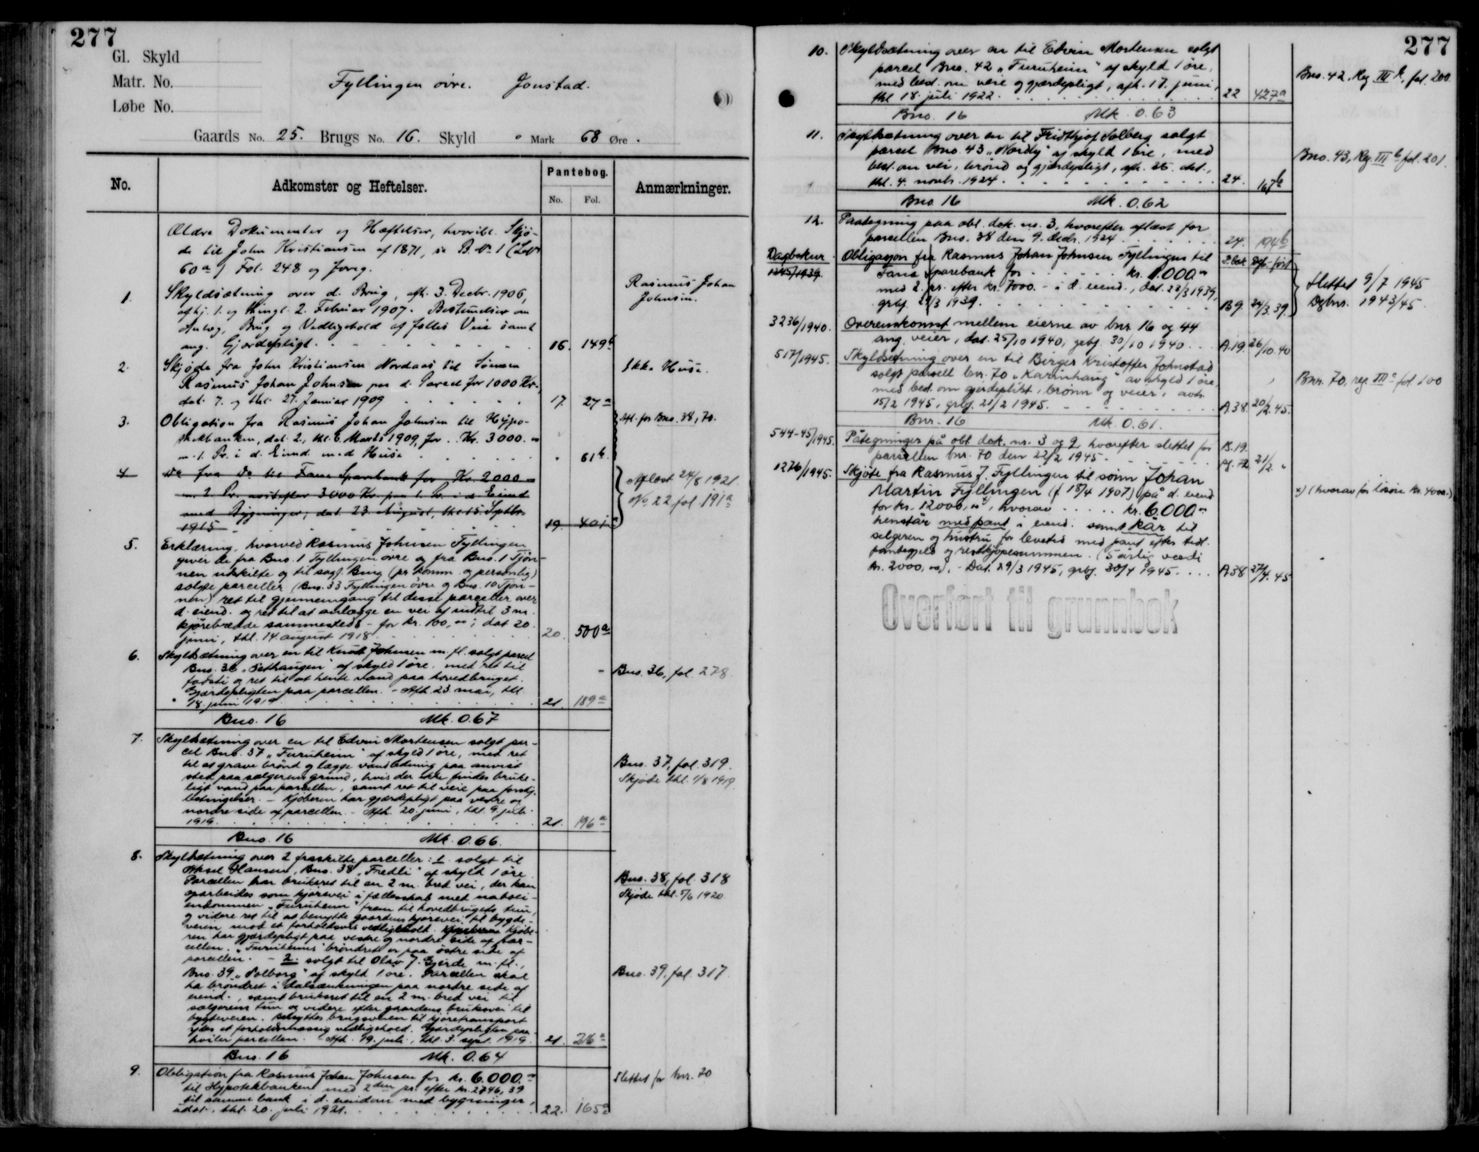 277
Gl. Skyld
Matr. No.
Løbe No.
Fyllingen øvre. Jonstad.
Gaards No. 25. Brugs No. 16. Skyld " Mark 68 Øre.
No.
Adkomster og Heftelser.
Pantebog.
No. Fol.
Anmærkninger.
Ældre Dokumenter og Hæftelser, hvoribl. Skjø-
de til John Kristiansen af 1871, se P. No. 1 (Løb
60 a) Fol. 248 og forrig.
1. Skyldsætning over d. Brug, afh. 3. Decbr. 1906,
afhj. 1. og thingl. 2. Februar 1907. Bestemmelser om
Anlæg, Brug og Vedligehold af fælles Veie samt
ang. Gjærdepligt. 16. 149b
Rasmus Johan
Johnsen.
2. Skjøde fra John Kristiansen Nordaas til Sønnen
Rasmus Johan Johnsen paa d. Parsel for 1000 Kr.,
dat. 7. og thl. 27. Januar 1909 17 27a
Ikke Huse.
3. Obligation fra Rasmus Johan Johnsen til Hypo-
thekbanken, dat. 2., thl. 6. Marts 1909, for Kr. 3000.-
m. 1. Pr. i d. Eiend. med Huse " 61b
Afl. for Bno. 38, 70.
4 Do fra Do til Fane Sparebank for Kr. 2000
m. 2 Pr. 3000 Kr. 1. Pr. i d. Eiend
med Bygninger, dat. 23 August, thl. 15. Septbr.
1915 19
Aflæst 24/8 1921
No 22 fol 191a
5. Erklæring, hvorved Rasmus Johnsen Fyllingen
giver de fra Bno. 1 Fyllingen øvre og fra Bno. 1 Tjøn-
nen utskilte og til sogf. Bing (pr. komm. og personlig)
solgte parceller (Bno. 33 Fyllingen øvre og Bno. 10 Tjøn-
nen) ret til gjennemgang til disse parceller over
d. eiend. og ret til at anlægge en vei af indtil 3 m.
kjørebredde sammesteds - for kr. 100,00; dat 20.
juni, thl. 14 august 1918. 20. 500a
6. Skyldsætning over en til Knut Johnsen m. fl. solgt parcel
Bno. 36 "Sethaugen" af skyld 1 øre, med ret til
fodsti og ret til at hente vand paa hovedbruget.
Gjærdepligten paa parcellen. - Afh. 23 mai, thl.
18. juni 1919 21. 189a
Bno. 36, fol. 278
Bno. 16 Mk. 0.67
7. Skyldsætning over en til Edvin Mortensen solgt par-
cel Bno. 37 "Furuheim" af skyld 1 øre, med ret
til at grave brønd og lægge vandledning paa anvist
sted paa sælgerens grund, hvis der ikke findes bruke-
ligt vand paa parcellen, samt ret til veie paa forskj.
betingelser. - Kjøberen har gjærdepligt paa vestre og
nordre side af parcellen. - Afh. 20. juni, thl. 9. juli
1919. 21. 196a
Bno. 37, fol. 319.
Skjøde thl. 1/8 1919.
Bno. 16 Mk. 0.66.
8. Skyldsætning over 2 fraskilte parceller: 1. solgt til
Aksel Hansen, Bno. 38 "Fredli" af skyld 1 øre.
Parcellen har bruksret til en 2 m. bred vei, der kan
oparbeides som kjørevei i fællesskab med naboei-
endommen "Furuheim" frem til hovedbrugets tun,
og videre ret til at benytte gaardens kjørevei til bygde-
veien mod et forholdsvis vedligehold. Kjøbe-
ren har gjærdepligt paa vestre og nordre side af par-
cellen. "Furuheims" brøndret er paa østre side af
parcellen. - 2. solgt til Olav J. Gjerde m. fl.,
Bno. 39 "Solborg" af skyld 1 øre. Parcellen skal
ha brøndret i dalsænkningen paa nordre side af
eiend., samt bruksret til en 2 m. bred vei til
sælgerens tun og videre efter gaardens bruksvei til
bygdeveien. Benyttes brugsveien til kjøretransport
ydes et forholdsmæssig vedligehold. Gjærdepligten paa-
hviler parcellen. Afh. 19. juli, thl. 3. sept. 1919. 21. 216a
Bno. 38, fol 318
Skjøde thl. 5/6 1920
Bno. 39, fol. 317.
Bno. 16 Mk. 0.64
9. Obligation fra Rasmus Johan Johnsen for kr. 6.000.-
til Hypotekbanken med 2den pr. efter kr. 2746,39
til samme bank i d. eiendom med bygninger,
udat. thl. 20. juli 1921. 22. 165a
Slettet for bnr. 70
277
10. Skyldsætning over en til Edvin Mortensen solgt
parcel Bno. 42 "Furuheim" af skyld 1 øre,
med best. om veie og gjærdepligt, afh. 17. juni,
thl 18. juli 1922. 22 427a
Bno. 42. Reg. III b, fol. 200
Bno. 16 Mk. 0.63
11. Skyldsætning over en til Fridthjof Solberg solgt
parcel Bno. 43 "Nordly" af skyld 1 øre, med
best. om vei, brønd og gjærdepligt, afh. 25. okt.,
thl. 4. novbr. 1924. 24. 167b
Bno. 43, Reg III b fol. 201.
Bno 16 Mk. 0.62
12. Paategning paa obl. dok. no. 3, hvorefter aflæst for
parcellen Bno. 38 den 9. decbr. 1924 24. 194b
Dagboknr.
1245/1939.
Obligasjon fra Rasmus Johan Johnsen Fyllingen til
Fana Sparebank for kr. 1.000.-
med 2. pr. efter kr. 7000.- i d. eiend., dat. 22/3 1939,
grbf. 24/3 1939. B.9 24/3.39.
Slettet 9/7 1945
Dgbnr. 1943/45.
3236/1940. Overenskomst mellem eierne av bnr. 16 og 44
ang. veier, dat. 25/10 1940, grbf. 30/10 1940. A.19. 26/10.40
517/1945. Skyldsetning over en til Birger Kristoffer Johnstad
solgt parsell bnr. 70 "Karinhaug" av skyld 1 øre,
med best. om gjerdeplikt, brønn og veier, avh.
15/2 1945, grbf. 21/2 1945. A.38. 20/2.45.
Bnr. 70, reg. III c fol. 100
Bnr. 16 Mk. 0.61.
544-45/1945. Påtegninger på obl. dok. nr. 3 og 9. hvorefter slettet for
parsellen bnr. 70 den 22/2 1945. B.19. 21/2 "
1276/1945. Skjøte fra Rasmus J. Fyllingen til sønn Johan
Martin Fyllingen (f 15/4 1907) på d. eiend
for kr. 12000,00, hvorav kr. 6.000.-
henstår med pant i eiend. samt kår til
selgeren og hustru for levetid med pant efter tidl.
pantegjeld og restkjøpesummen. (5 årlig verdi
kr. 2000,00). - Dat. 29/3 1945, grbf. 30/4 1945. A.38 27/4.45
x) (hvorav for løsøre kr. 4000.-)
Overført til grunnbok